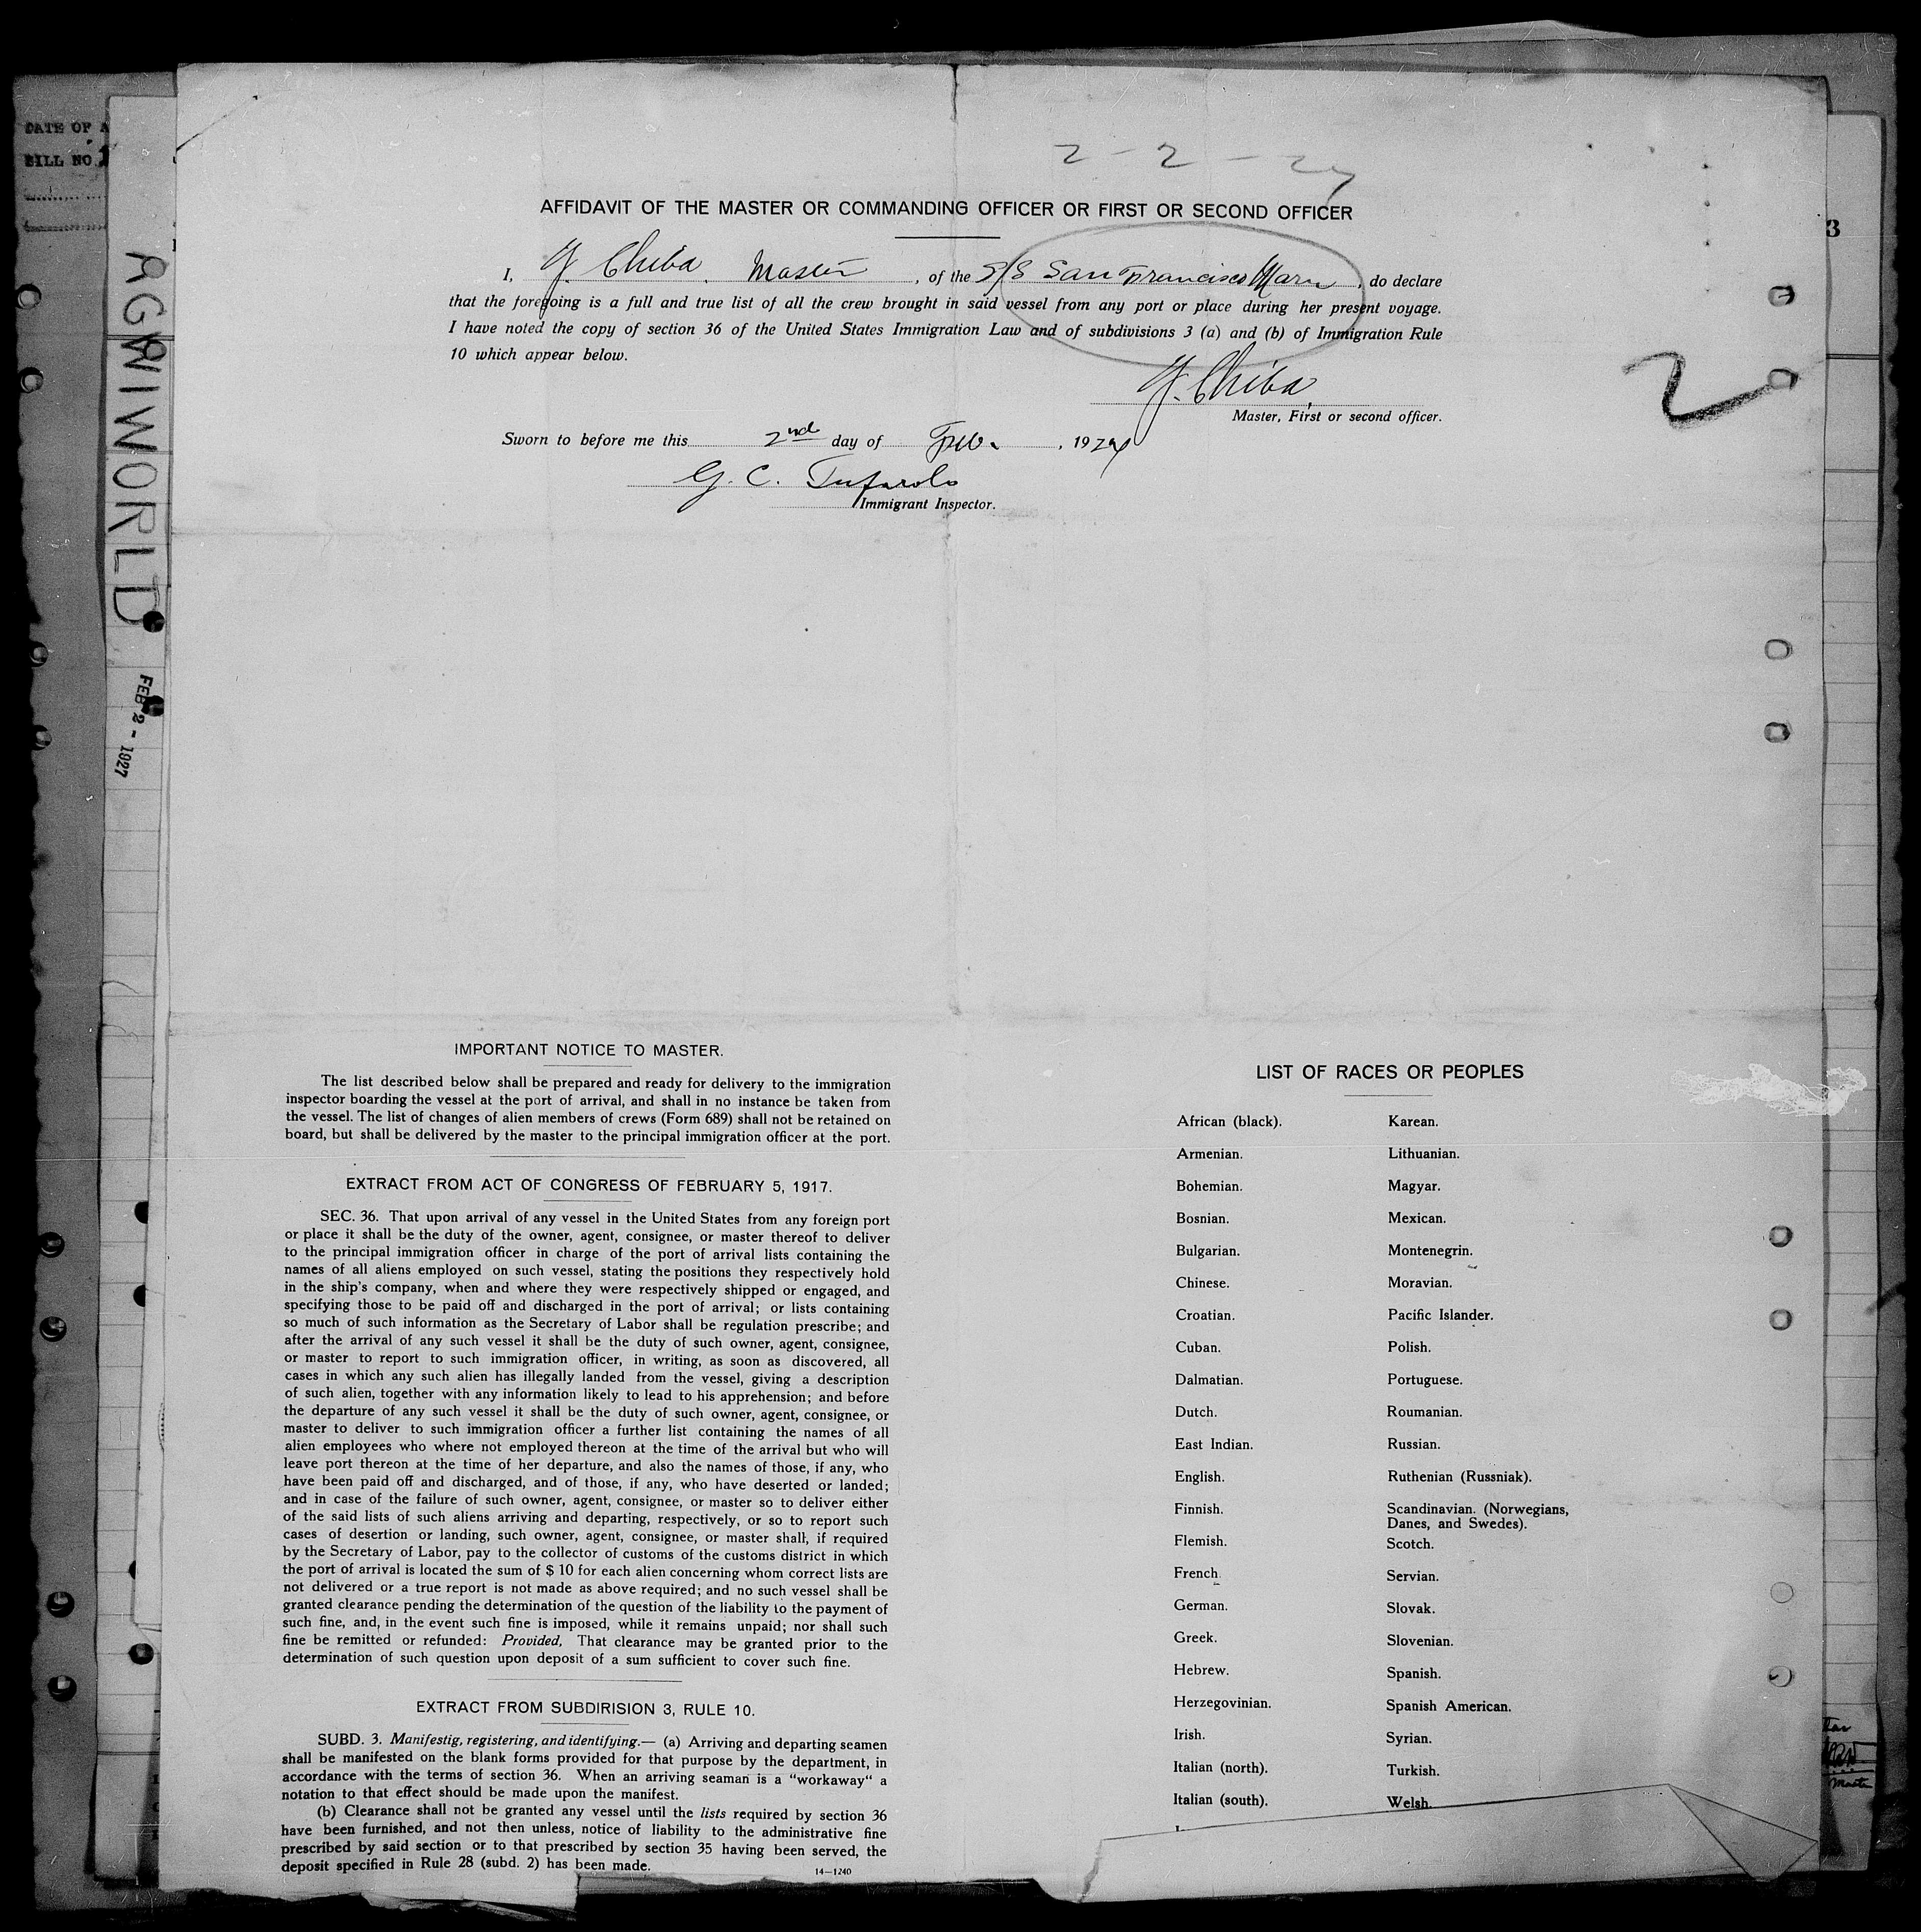 DATE OF A
BILL NO.
AGWIWORLD
FEB 2 - 1927
3
2 - 2 - 27
AFFIDAVIT OF THE MASTER OR COMMANDING OFFICER OR FIRST OR SECOND OFFICER
I, Y. Chiba. Master, of the S/S San Francisco Maru, do declare
that the foregoing is a full and true list of all the crew brought in said vessel from any port or place during her present voyage.
I have noted the copy of section 36 of the United States Immigration Law and of subdivisions 3 (a) and (b) of Immigration Rule
10 which appear below.
Y. Chiba,
2
Master, First or second officer.
Sworn to before me this 2nd day of Feb., 1927
G. C. Tufarolo
Immigrant Inspector.
IMPORTANT NOTICE TO MASTER.
The list described below shall be prepared and ready for delivery to the immigration
inspector boarding the vessel at the port of arrival, and shall in no instance be taken from
the vessel. The list of changes of alien members of crews (Form 689) shall not be retained on
board, but shall be delivered by the master to the principal immigration officer at the port.
EXTRACT FROM ACT OF CONGRESS OF FEBRUARY 5, 1917.
SEC. 36. That upon arrival of any vessel in the United States from any foreign port
or place it shall be the duty of the owner, agent, consignee, or master thereof to deliver
to the principal immigration officer in charge of the port of arrival lists containing the
names of all aliens employed on such vessel, stating the positions they respectively hold
in the ship's company, when and where they were respectively shipped or engaged, and
specifying those to be paid off and discharged in the port of arrival; or lists containing
so much of such information as the Secretary of Labor shall be regulation prescribe; and
after the arrival of any such vessel it shall be the duty of such owner, agent, consignee,
or master to report to such immigration officer, in writing, as soon as discovered, all
cases in which any such alien has illegally landed from the vessel, giving a description
of such alien, together with any information likely to lead to his apprehension; and before
the departure of any such vessel it shall be the duty of such owner, agent, consignee, or
master to deliver to such immigration officer a further list containing the names of all
alien employees who where not employed thereon at the time of the arrival but who will
leave port thereon at the time of her departure, and also the names of those, if any, who
have been paid off and discharged, and of those, if any, who have deserted or landed;
and in case of the failure of such owner, agent, consignee, or master so to deliver either
of the said lists of such aliens arriving and departing, respectively, or so to report such
cases of desertion or landing, such owner, agent, consignee, or master shall, if required
by the Secretary of Labor, pay to the collector of customs of the customs district in which
the port of arrival is located the sum of $ 10 for each alien concerning whom correct lists are
not delivered or a true report is not made as above required; and no such vessel shall be
granted clearance pending the determination of the question of the liability to the payment of
such fine, and, in the event such fine is imposed, while it remains unpaid; nor shall such
fine be remitted or refunded: Provided, That clearance may be granted prior to the
determination of such question upon deposit of a sum sufficient to cover such fine.
EXTRACT FROM SUBDIRISION 3, RULE 10.
SUBD. 3. Manifestig, registering, and identifying.— (a) Arriving and departing seamen
shall be manifested on the blank forms provided for that purpose by the department, in
accordance with the terms of section 36. When an arriving seaman is a "workaway" a
notation to that effect should be made upon the manifest.
(b) Clearance shall not be granted any vessel until the lists required by section 36
have been furnished, and not then unless, notice of liability to the administrative fine
prescribed by said section or to that prescribed by section 35 having been served, the
deposit specified in Rule 28 (subd. 2) has been made.
14—1240
LIST OF RACES OR PEOPLES
African (black).
Armenian.
Bohemian.
Bosnian.
Bulgarian.
Chinese.
Croatian.
Cuban.
Dalmatian.
Dutch.
East Indian.
English.
Finnish.
Flemish.
French.
German.
Greek.
Hebrew.
Herzegovinian.
Irish.
Italian (north).
Italian (south).
Karean.
Lithuanian.
Magyar.
Mexican.
Montenegrin.
Moravian.
Pacific Islander.
Polish.
Portuguese.
Roumanian.
Russian.
Ruthenian (Russniak).
Scandinavian. (Norwegians,
Danes, and Swedes).
Scotch.
Servian.
Slovak.
Slovenian.
Spanish.
Spanish American.
Syrian.
Turkish.
Welsh.